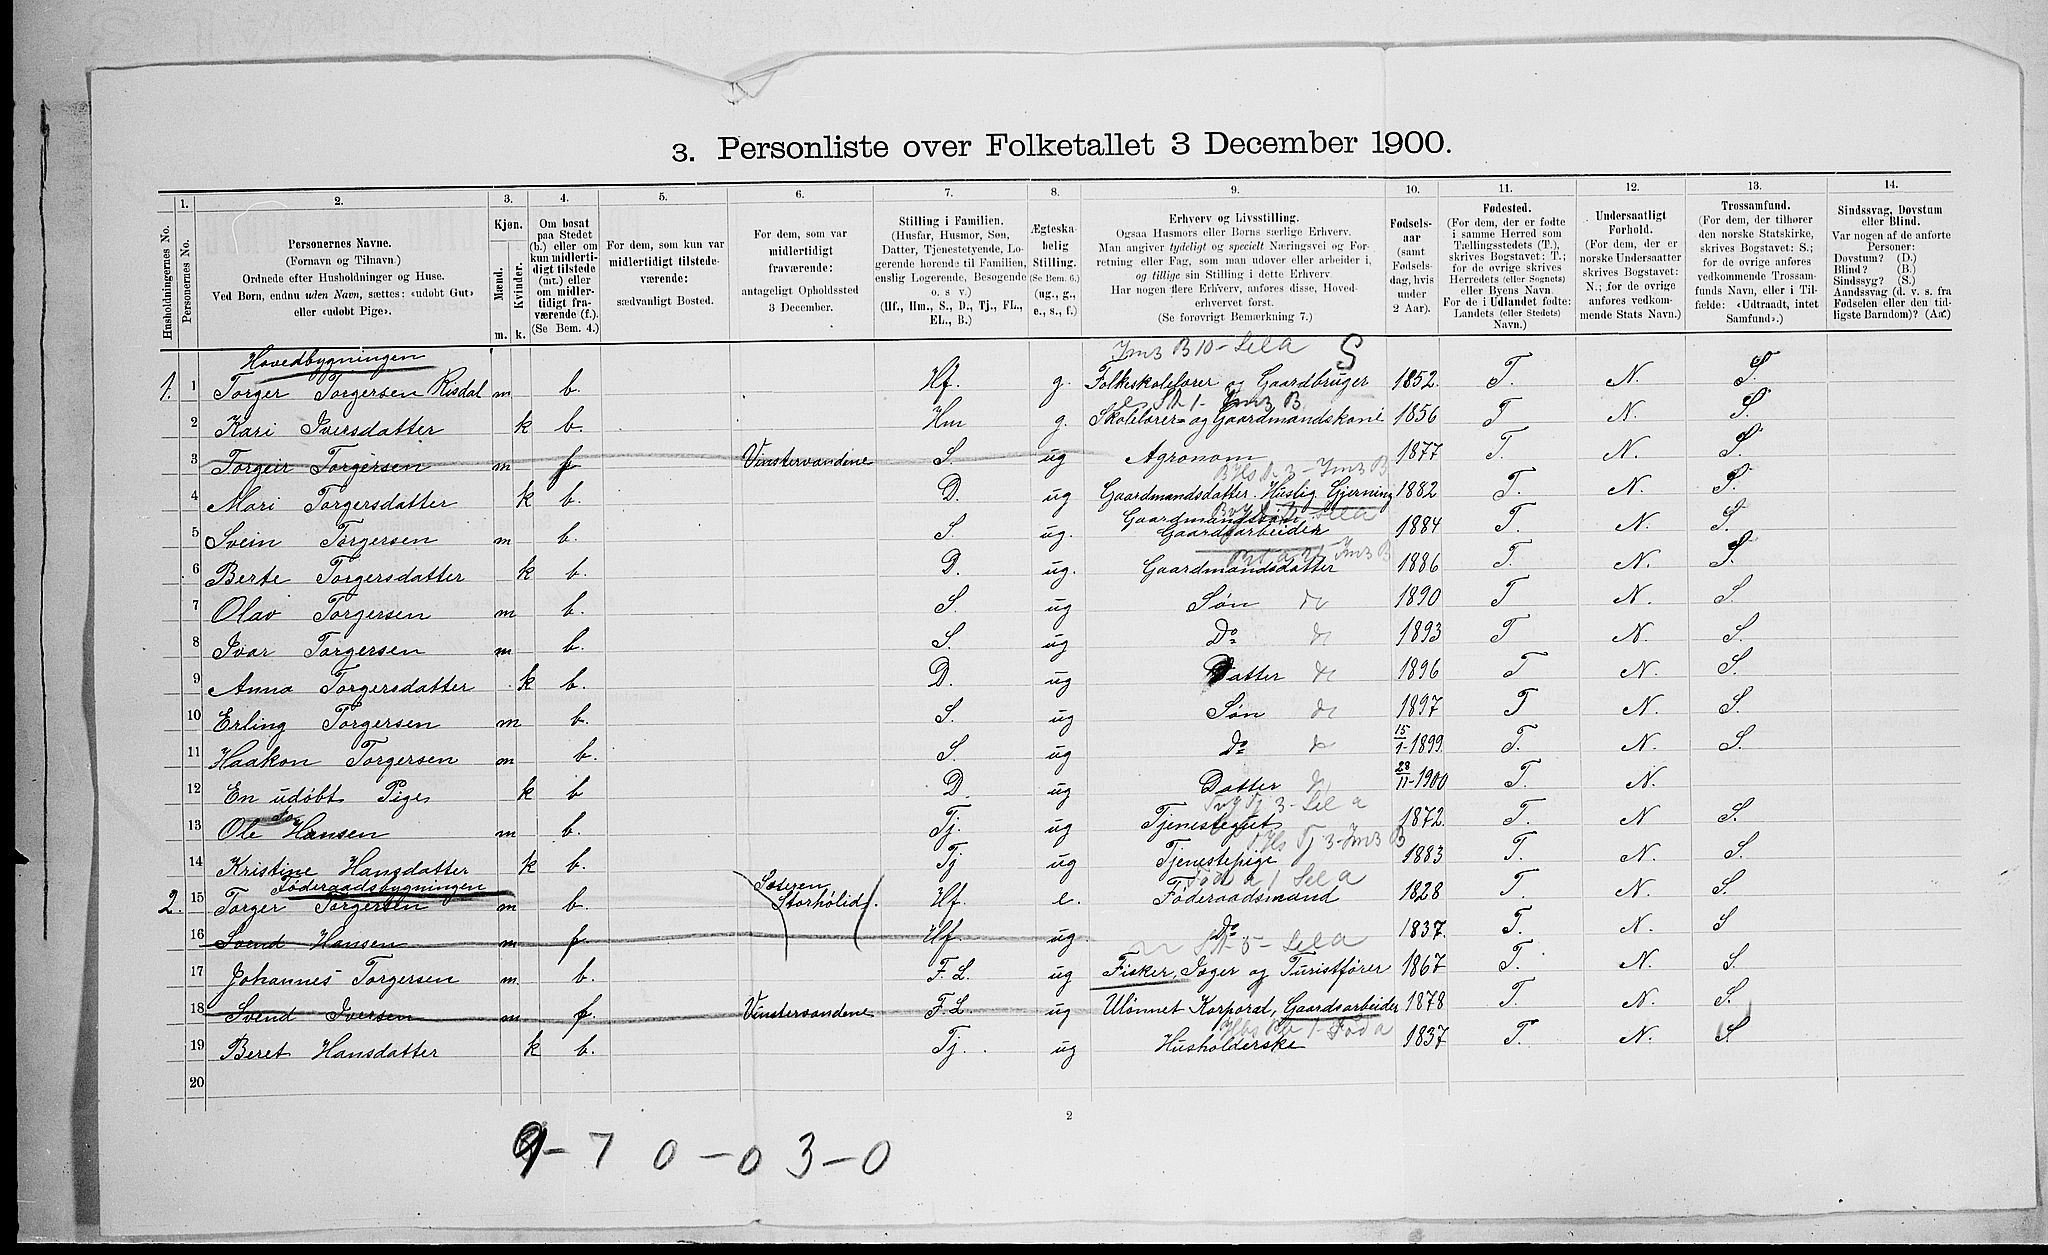 3. Personliste over Folketallet 3 December 1900.
1. 2. 3. 4. 5. 6. 7. 8. 9. 10. 11. 12. 13. 14.
Husholdningernes No.
Personernes No.
Personernes Navne.
(Fornavn og Tilnavn.)
Ordnede efter Husholdninger og Huse.
Ved Børn, endnu uden Navn, sættes: «udøbt Gut»
eller «udøbt Pige».
Kjøn.
Mænd.
Kvinder.
m. k.
Om bosat
paa Stedet
(b.) eller om
kun midlerti-
digt tilstede
(mt.) eller
om midler-
tidigt fra-
værende (f.).
(Se Bem. 4.)
For dem, som kun var
midlertidigt tilstede-
værende:
sædvanligt Bosted.
For dem, som var
midlertidigt
fraværende:
antageligt Opholdssted
3 December.
Stilling i Familien.
(Husfar, Husmor, Søn,
Datter, Tjenestetyende, Lo-
gerende hørende til Familien,
enslig Logerende, Besøgende
o. s v.)
(Hf., Hm., S., D., Tj., FL.,
EL., B.)
Ægteska-
belig
Stilling.
(Se Bem. 6.)
(ug., g.,
e., s., f.)
Erhverv og Livsstilling.
Ogsaa Husmors eller Børns særlige Erhverv.
Man angiver tydeligt og specielt Næringsvei og For-
retning eller Fag, som man udøver eller arbeider i,
og tillige sin Stilling i dette Erhverv.
Har nogen flere Erhverv, anføres disse, Hoved-
erhvervet først.
(Se forøvrigt Bemærkning 7.)
Fødsels-
aar
(samt
Fødsels-
dag, hvis
under
2 Aar).
Fødested.
(For dem, der er fødte
i samme Herred som
Tællingsstedets (T.),
skrives Bogstavet: T.;
for de øvrige skrives
Herredets (eller Sognets)
eller Byens Navn.
For de i Udlandet fødte:
Landets (eller Stedets)
Navn.)
Undersaatligt
Forhold.
(For dem, der er
norske Undersaatter
skrives Bogstavet:
N.; for de øvrige
anføres vedkom-
mende Stats Navn.)
Trossamfund.
(For dem, der tilhører
den norske Statskirke,
skrives Bogstavet: S.;
for de øvrige anføres
vedkommende Trossam-
funds Navn, eller i Til-
fælde: «Udtraadt, intet
Samfund».)
Sindssvag, Døvstum
eller Blind.
Var nogen af de anførte
Personer:
Døvstum? (D.)
Blind? (B.)
Sindssyg? (S.)
Aandssvag (d. v. s. fra
Fødselen eller den tid-
ligste Barndom)? (Aa.)
Hovedbygningen
S
1. 1 Torger Torgersen Risdal m b. Hf. g. Folkeskolelærer og Gaardbruger 1852 T. N. S.
2 Kari Iversdatter k b. Hm g. Skolelærer- og Gaardmandskone 1856 T N. S.
3 Torgeir Torgersen m f Vinstervandene S. ug Agronom 1877 T. N. S.
4 Mari Torgersdatter k b. D. ug Gaardmandsdatter. Huslig Gjerning 1882 T. N. S.
Gaardmandssøn
5 Svein Torgersen m b. S. ug. Gaardsarbeider 1884 T. N. S.
6 Berte Torgersdatter k b. D. ug. Gaardmandsdatter 1886 T. N. S.
7 Olav Torgersen m b. S. ug Søn 1890 T N. S.
8 Ivar Torgersen m b. S. ug Do 1893 T N. S.
9 Anna Torgersdatter k b. D. ug Datter 1896 T N. S.
10 Erling Torgersen m b. S. ug Søn 1897 T N. S.
11 Haakon Torgersen m b. S. ug Do 15/1-1899. T. N. S.
12 En udøbt Pige k b D. ug Datter 28/11-1900 T. N.
13 Ole Hansen m b. Tj. ug Tjenestegut 1872. T. N S.
14 Kristine Hansdatter k b. Tj ug Tjenestepige 1883 T. N. S.
Føderaadsbygningen
2. 15 Torger Torgersen m b. Storhølid. Hf. e. Føderaadsmand 1828 T. N. S.
16 Svend Hansen m f Hf. ug. Do 1837. T. N. S
17 Johannes Torgersen m b. F.L. ug Fisker, Jæger og Turistfører 1867 T. N. S.
18 Svend Iversen m f. Vinstervandene F.L ug Ulønnet Korporal, Gaardsarbeider 1878 T. N. S.
19 Beret Hansdatter k b. Tj. ug Husholderske 1837 T. N. S.
20
2
9-7 0-0 3-0